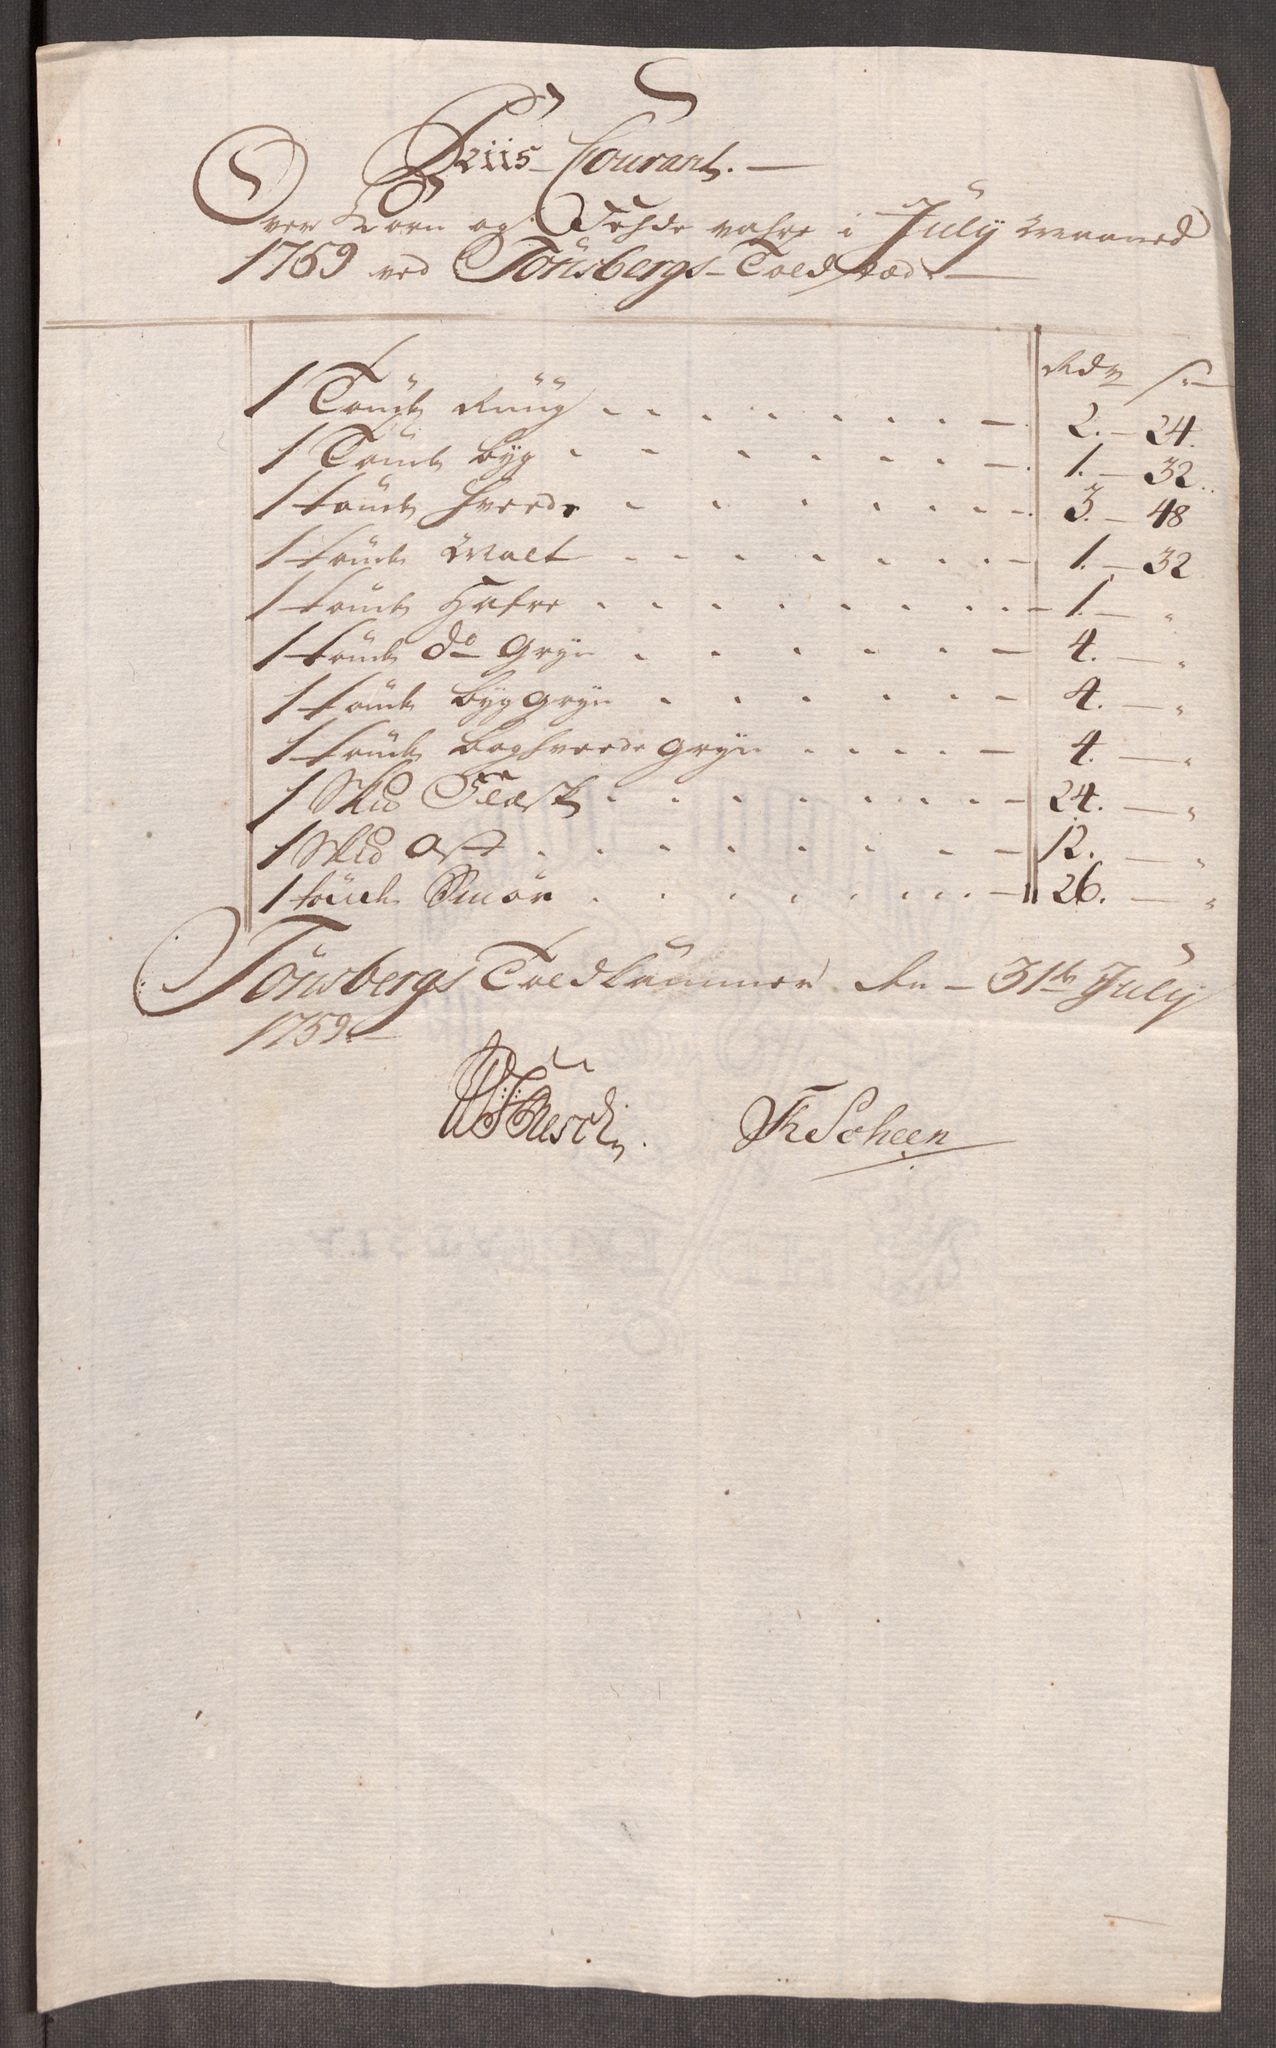 Priis Courant.
Over Korn og Fehde vahre i July Maaned
1759 ved Tönsbergs Toldstæd
Rdr s
1 Tönde Rüüg 2. 24.
1 Tönde byg 1. 32.
1 tönde hvede 3. 48
1 tönde Malt 1. 32
1 tönde Hafre 1. "
1 tönde do gryn 4. "
1 tönde byg gryn 4. "
1 tönde boghvede gryn 4. "
1 Skld Flæsk 24. "
1 Skld Ost 12. "
1 tönde Smör 26. "
Tönsbergs Toldkammer den 31te July
1759
FR Scheen